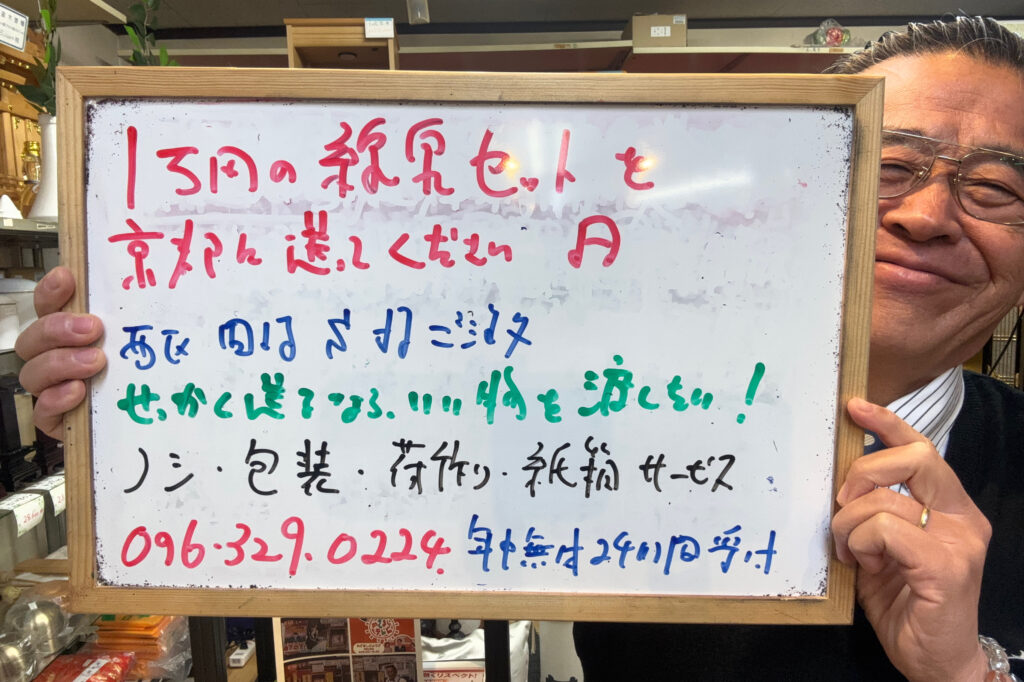 1万円の線香セットを
京都に送ってください 円
西区 田崎 さま ご注文
せっかく送るなら、いい物を渡したい!
ノシ・包装・荷作り・紙箱 サービス
096.329.0224. 年中無休24時間受付